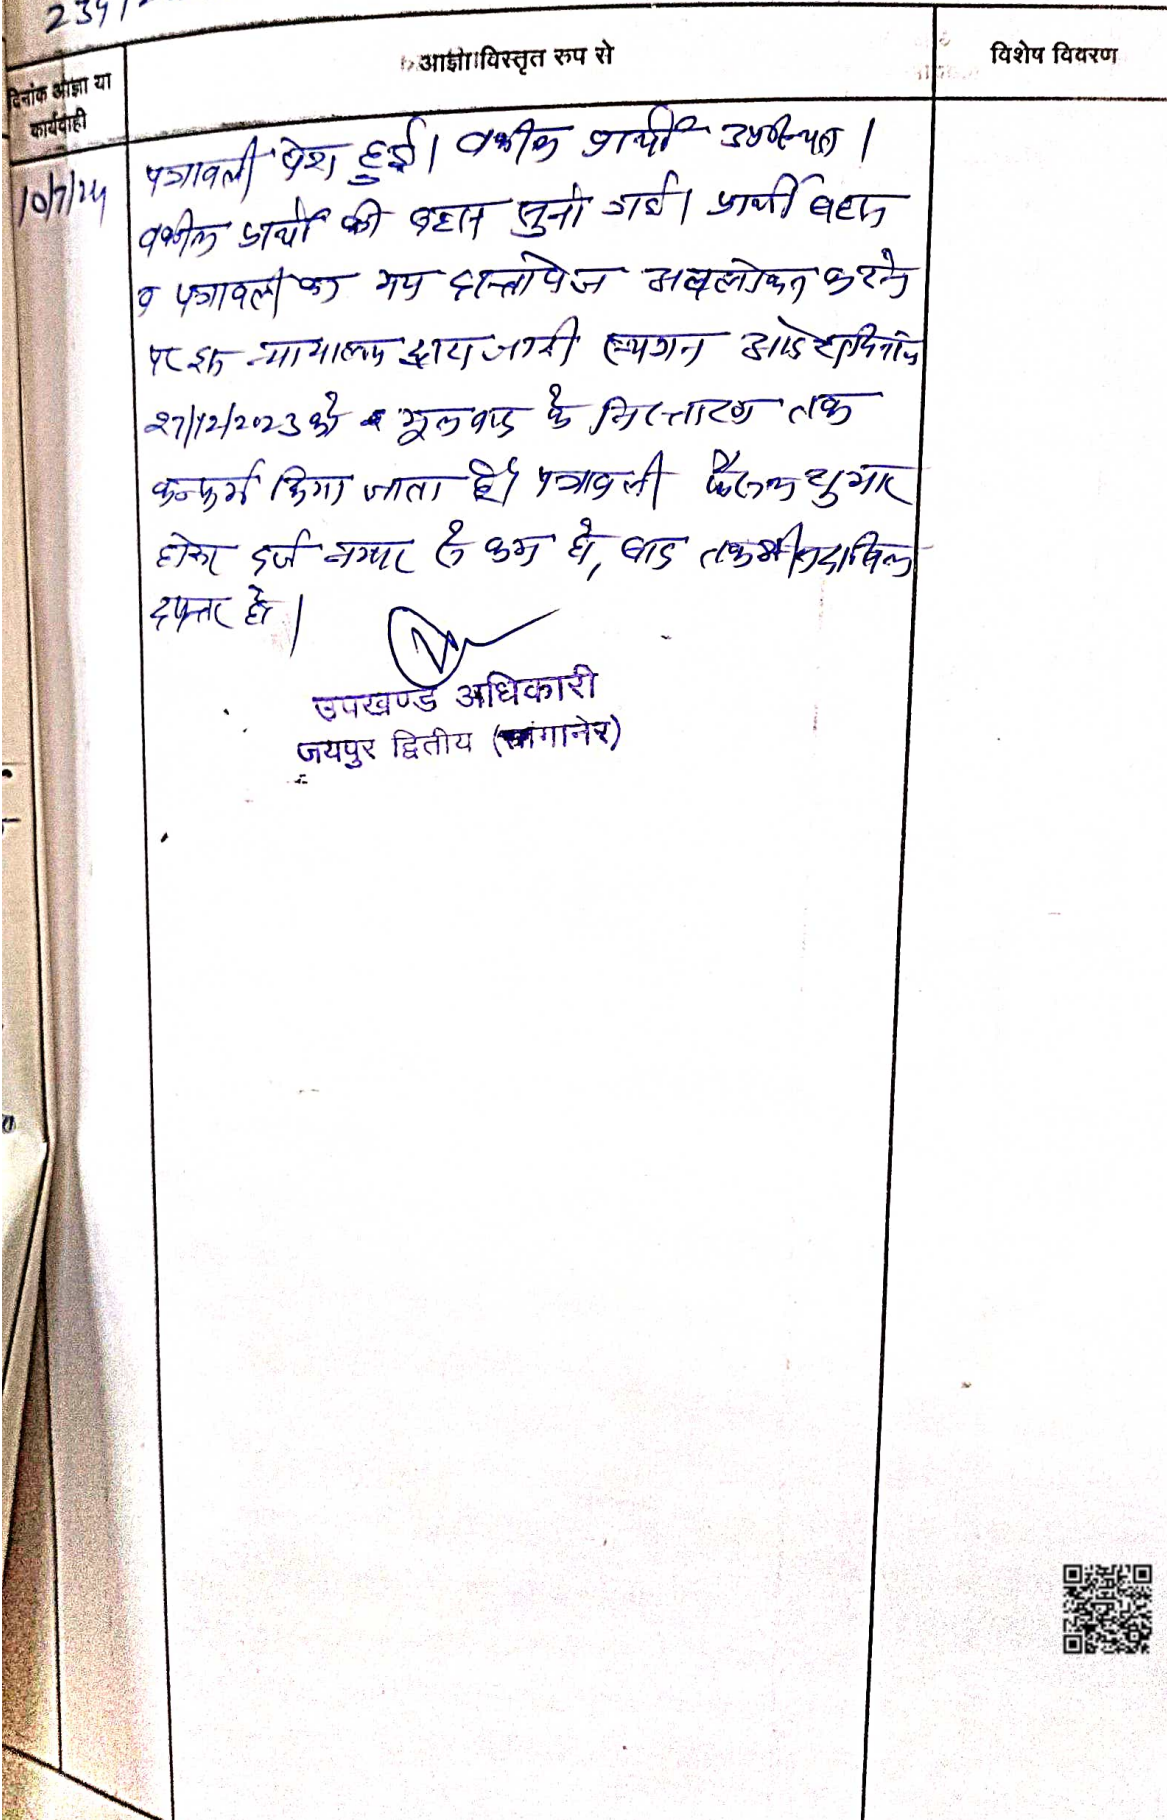 239
दिनांक आज्ञा या
कार्यवाही
आज्ञा विस्तृत रुप से
विशेष विवरण
10/7/24
पत्रावली पेश हुई। वकील प्रार्थी उपस्थित।
वकील प्रार्थी की बहस सुनी गई। प्रार्थी बहस
व पत्रावली का मय दस्तावेज अवलोकन करने
पर इस न्यायालय द्वारा जारी स्थगन आदेश दिनांक
27/12/2023 को मूलवाद के निस्तारण तक
कन्फर्म किया जाता है। पत्रावली फैसल शुमार
होकर दर्ज नम्बर से कम हो, बाद तकमील दाखिल
दफ्तर हो।
उपखण्ड अधिकारी
जयपुर द्वितीय (सांगानेर)